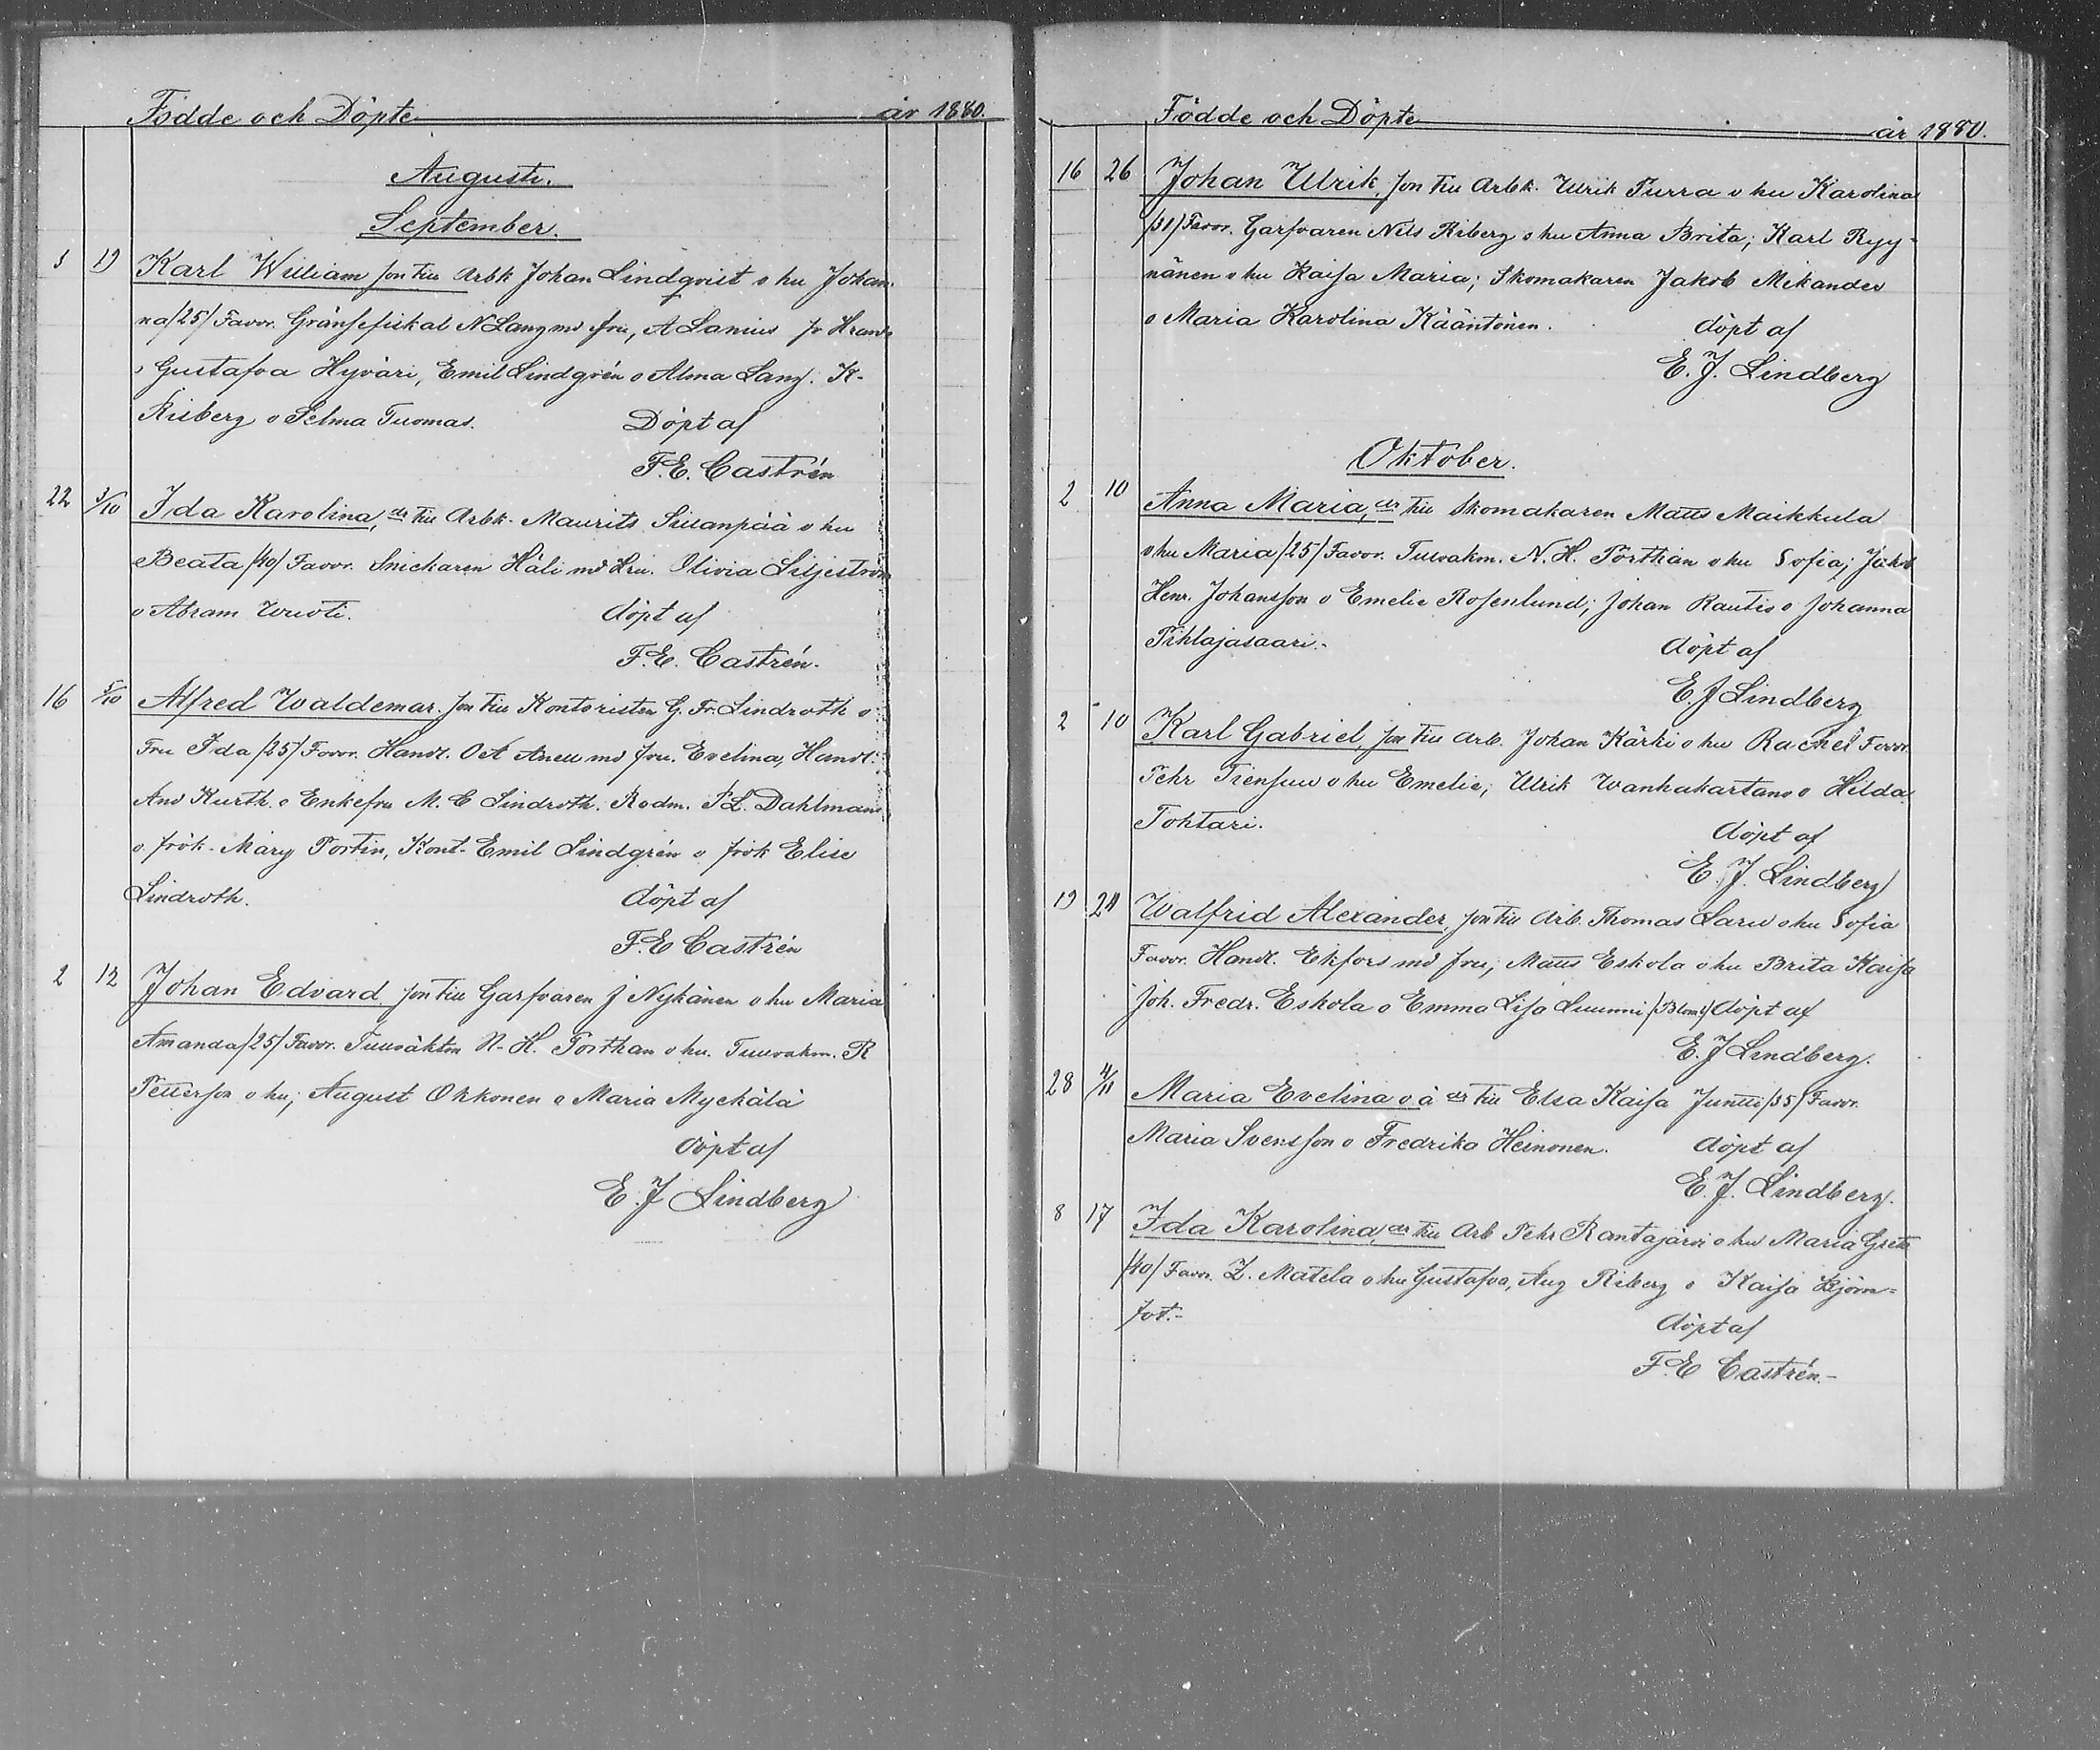 Födde och Döpte år 1880.
Augusti.
September.
3 19 Karl William, son till Arbk Johan Lindqvist o hu Johan-
na /25/ Favor. Gränsefiskal N Lang md fru, A Lanius
o Gustafva Hyväri, Emil Lindgrén o Alma Lang. K.
Risberg o Selma Tuomas. Döpt af
F.E. Castrén
22 3/10 Ida Karolina, dr till Arbk. Maurits Sillanpää o hu
Beata /40/ Favor. Snickaren Häli md Hru. Olivia Liljeström
o Abram Wuoti. döpt af
F.E. Castrén.
16 5/10 Alfred Waldemar. son till Kontoristen G. Fr. Lindroth o
Fru Ida /25/ Favor. Handl. O A Anell md fru. Evelina, Handl:
And Kurth. o Enkefru M. C Lindroth. Rodm. P L. Dahlman
o frök. Mary Portin, Kont. Emil Lindgrén o frök Elise
Lindroth. döpt af
F.E Castrén
2 12 Johan Edvard. son till Garfvaren J Nykänen o hu Maria
Amanda /25/ Favor. Tullväktm N. H. Porthan o hu. Tullvakm. R
Petterson o hu; August Okkonen o Maria Myckälä
döpt af
E. J Lindberg
Födde och Döpte år 1880.
16 26 Johan Ulrik, son till Arbk. Ulrik Turra o hu Karolina
/31/ Favor. Garfvaren Nils Riberg o hu Anna Brita; Karl Ryy-
nänen o hu Kaisa Maria; Skomakaren Jakob Mikander
o Maria Karolina Kääntönen. döpt af
E. J. Lindberg
Oktober.
2 10 Anna Maria, dr till Skomakaren Matts Maikkula
o hu Maria /25/ Favor. Tullvakm. N. H. Porthan o hu Sofia; Jakob
Henr. Johansson o Emelie Rosenlund; Johan Rautio o Johanna
Pihlajasaari. döpt af
E. J Lindberg
2 10 Karl Gabriel, son till Arb. Johan Kärki o hu Rachel Favor.
Pehr Tiensuu o hu Emelie, Ulrik Wanhakartano o Hilda
Tohtari. döpt af
E. J. Lindberg
19 24 Walfrid Alexander, son till Arb. Thomas Laru o hu Sofia
Favor. Handl. Ekfors md fru, Matts Eskola o hu Brita Kaisa
Joh. Fredr. Eskola o Emma Lisa Luumi /Blom/ döpt af
E. J Lindberg.
28 4/11 Maria Evelina o ä dr till Elsa Kaisa Juntti /35/ Favor.
Maria Svensson o Fredrika Heinonen. döpt af
E. J. Lindberg.
8 17 Ida Karolina, dr till Arb Pehr Rantajärvi o hu Maria Greta
/40/ Favor. Z. Matela o hu Gustafva, Aug Riberg o Kaisa Björn-
fot.- döpt af
F. E Castrén.-